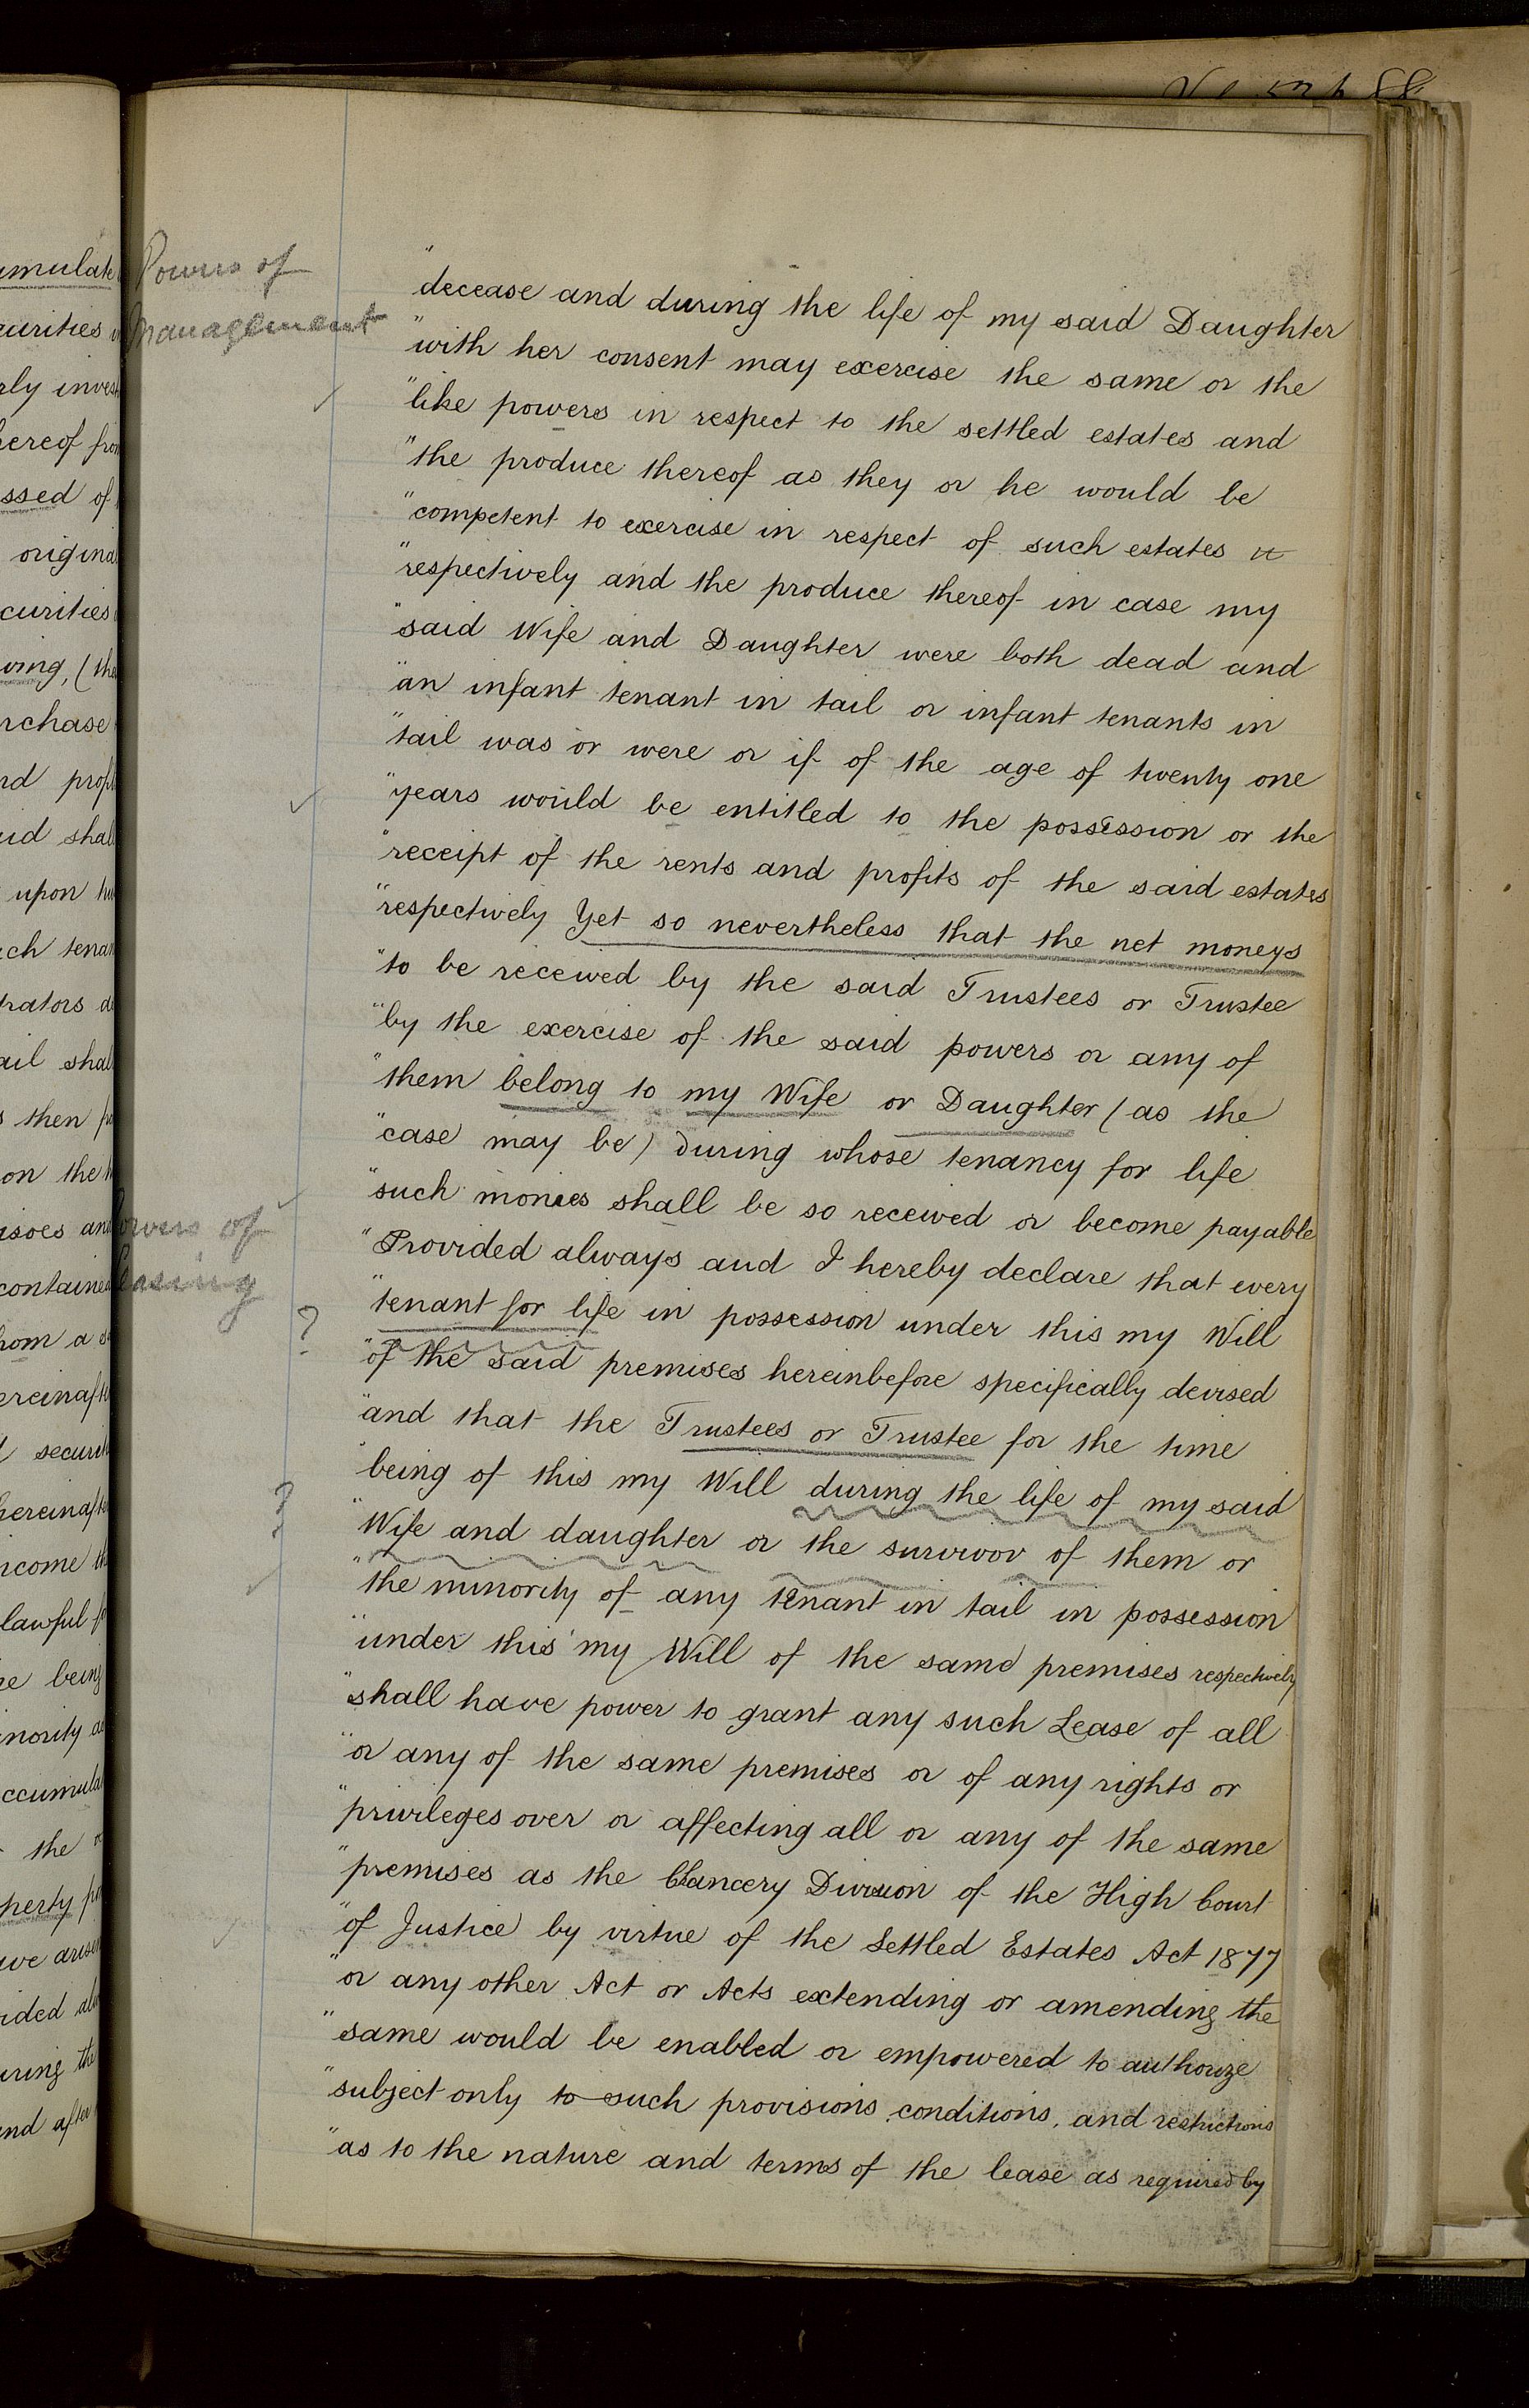 Powers of
Management
"decease and during the life of my said Daughter
"with her consent may exercise the same or the
"like powers in respect to the settled estates and
"the produce thereof as they or he would be
"competent to exercise in respect of such estates
"respectively and the produce thereof in case my
"said Wife and Daughter were both dead and
"an infant tenant in tail or infant tenants in
"tail was or were or if of the age of twenty one
"years would be entitled to the possession or the
"receipt of the rents and profits of the said estates
"respectively Yet so nevertheless that the net moneys
"to be received by the said Trustees or Trustee
"by the exercise of the said powers or any of
"them belong to my Wife or Daughter (as the
"case may be) during whose tenancy for life
"such monies shall be so received or become payable
Powers of
Leasing
"Provided always and I hereby declare that every
"tenant for life in possession under this my Will
?
"of the said premises hereinbefore specifically devised
"and that the Trustees or Trustee for the time
"being of this my Will during the life of my said
?
"Wife and daughter or the survivor of them or
"the minority of any tenant in tail in possession
"under this my Will of the same premises respectively
"shall have power to grant any such Lease of all
"or any of the same premises or of any rights or
"privileges over or affecting all or any of the same
"premises as the Chancery Division of the High Court
"of Justice by virtue of the Settled Estates Act 1877
"or any other Act or Acts extending or amending the
"same would be enabled or empowered to authorize
"subject only to such provisions, conditions, and restrictions
"as to the nature and terms of the lease as required by
umulate
curities
rly invest
hereof from
ssed of
origina
curities
ving, (the
rchase
nd profi
aid shall
upon
ch tenan
rators
ail shall
then
on the
isoes and
contained
hom a
ereinafte
securit
hereinafte
ncome th
lawful
re being
inority
ccumula
the
perty
ve arisen
vided alw
uring the
and after